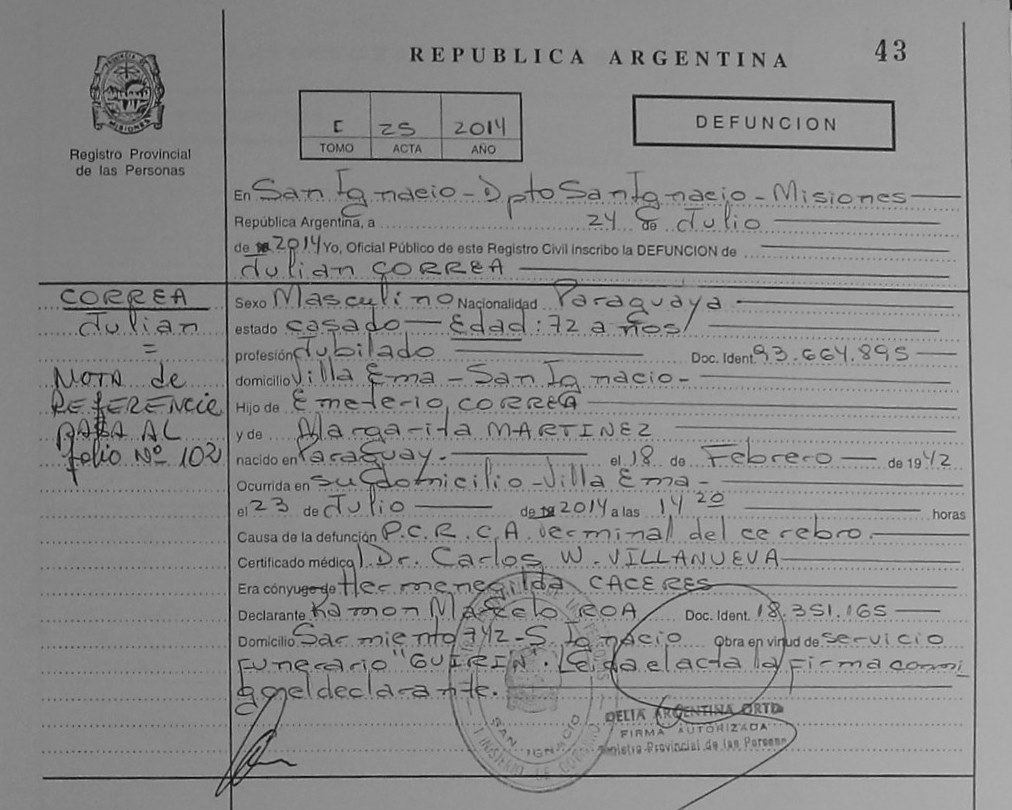 REPUBLICA ARGENTINA
43
PROVINCIA DE
MISIONES
Registro Provincial
de las Personas
I 25 2014
TOMO ACTA AÑO
DEFUNCION
En San Ignacio - Dpto San Ignacio - Misiones
República Argentina, a 24 de Julio
de 2014 Yo, Oficial Público de este Registro Civil inscribo la DEFUNCION de
Julian CORREA
CORREA
Julian
=
NOTA de
REFERENCIA
PARA AL
folio Nº 102
Sexo Masculino Nacionalidad Paraguaya
estado casado - Edad: 72 años
profesión Jubilado Doc. Ident. 93.664.895
domicilio Villa Ema - San Ignacio -
Hijo de Emeterio CORREA
y de Margarita MARTINEZ
nacido en Paraguay. el 18 de Febrero de 1942
Ocurrida en su Domicilio - Villa Ema -
el 23 de Julio de 2014 a las 14 20 horas
Causa de la defunción P.C.R. C.A. terminal del cerebro.
Certificado médico Dr. Carlos W. VILLANUEVA
Era cónyuge de Hermenegilda CACERES
Declarante Ramon Marcelo ROA Doc. Ident. 18.351.165
Domicilio Sarmiento 742 - S. Ignacio Obra en virtud de servicio
Funerario "GUIRIN". Leida el acta la firma conmi
go el declarante.
SAN IGNACIO
MINISTERIO DE GOBIERNO
DELIA ARGENTINA
FIRMA AUTORIZADA
Registro Provincial de las Personas